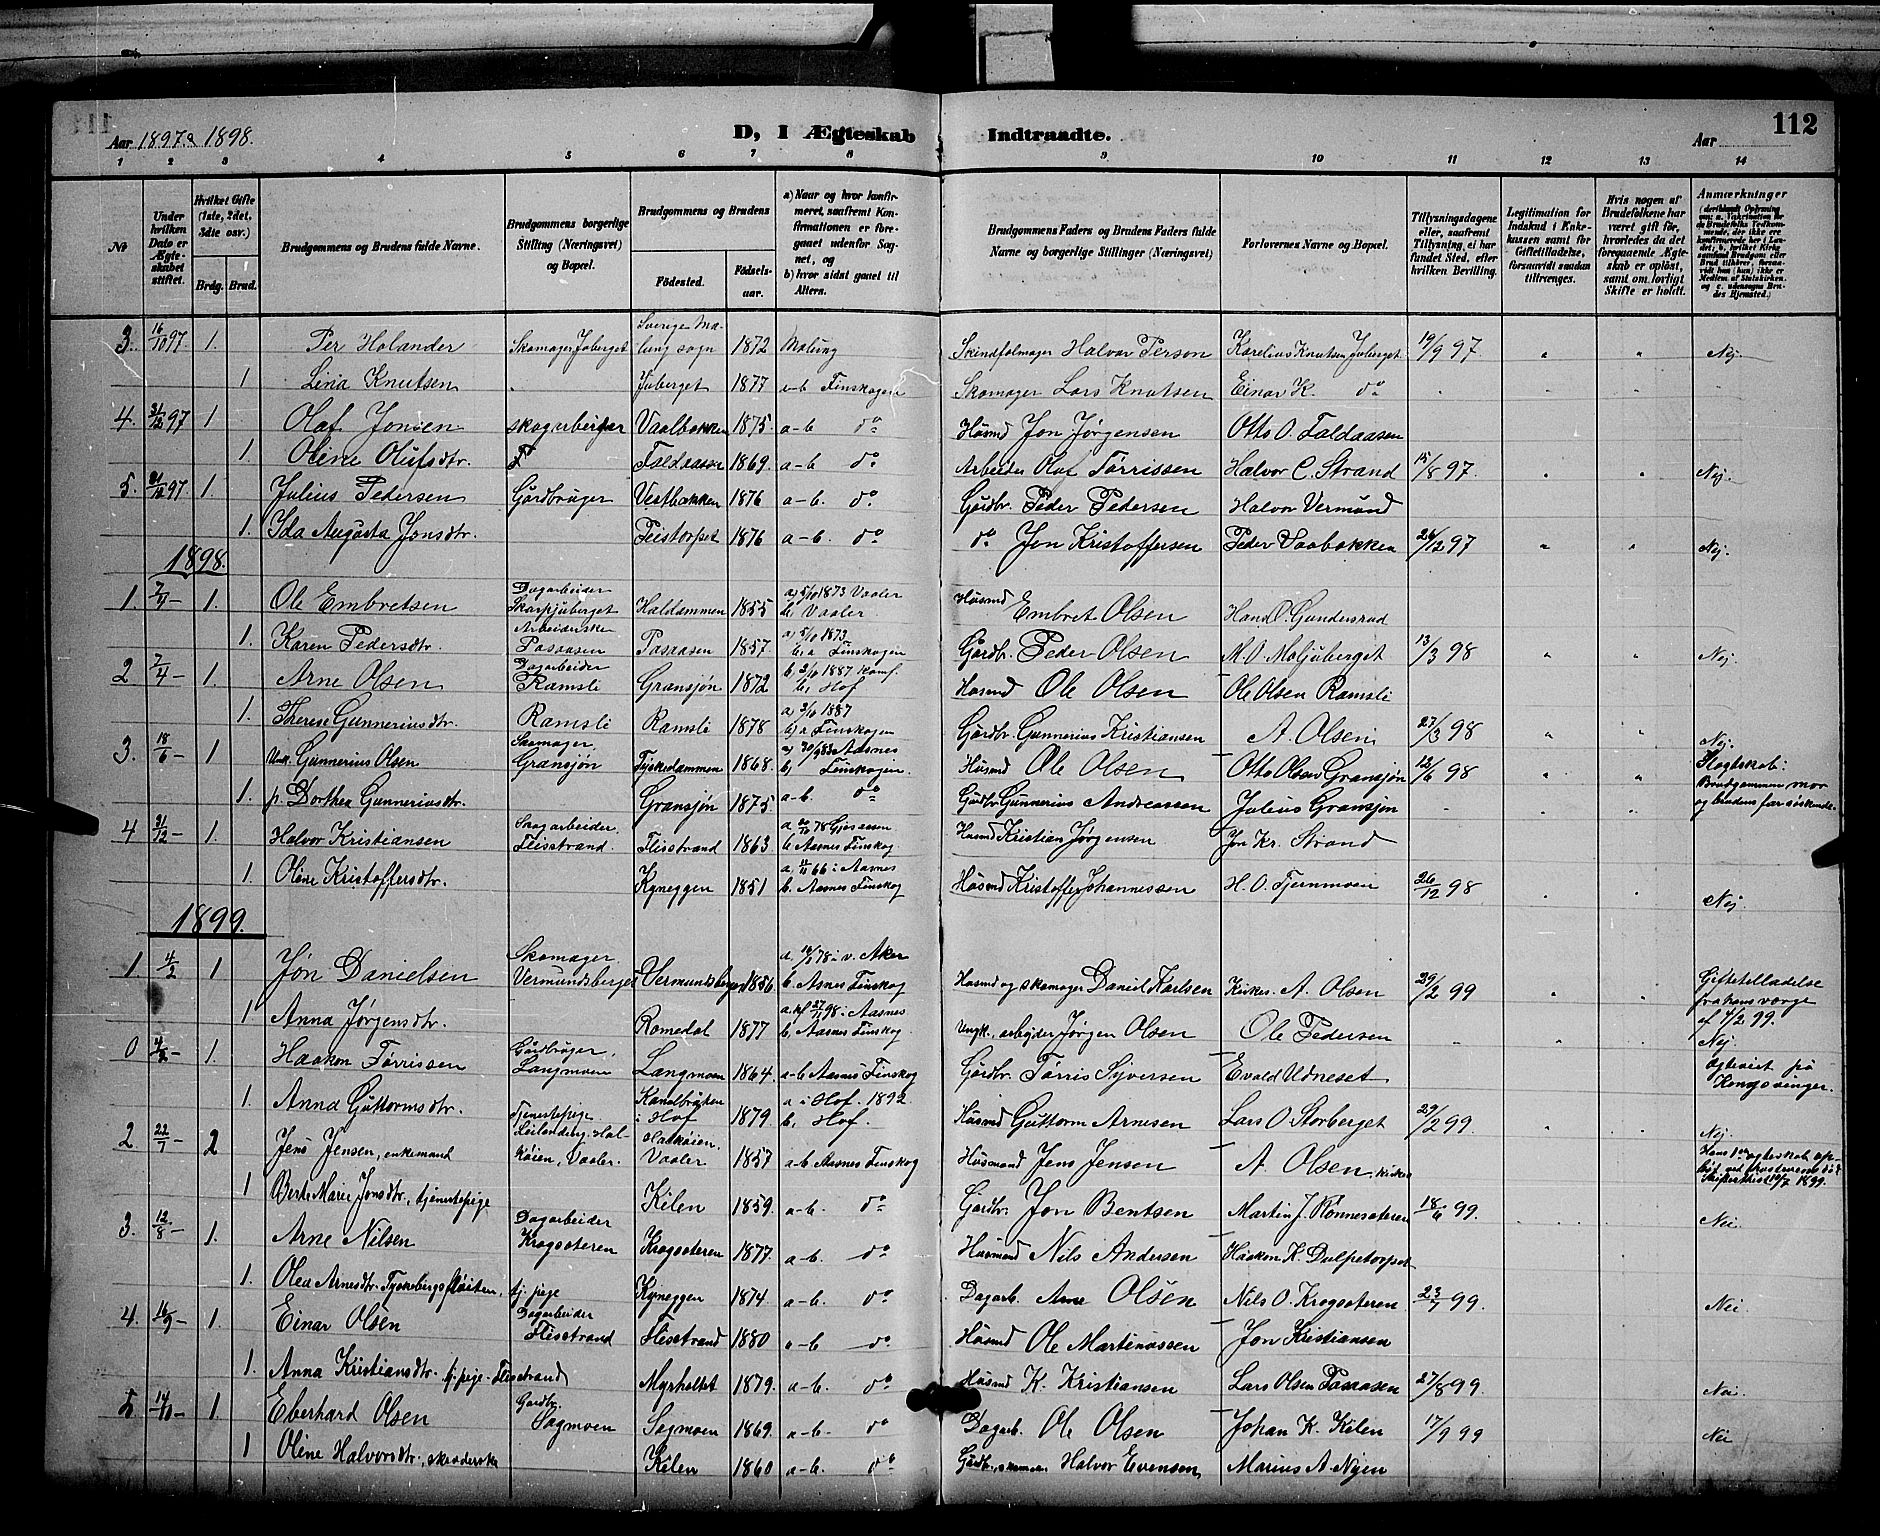 Aar 1897 & 1898.
D, I Ægteskab Indtraadte.
Aar
112
1 2 3 4 5 6 7 8 9 10 11 12 13 14
No
Under hvilken Dato er Ægteskabet stiftet.
Hvilket Gifte (1ste, 2det, 3die osv.)
Brdg. Brud.
Brudgommens og Brudens fulde Navne.
Brudgommens borgerlige Stilling (Næringsvei) og Bopæl.
Brudgommens og Brudens
Fødested. Fødselsaar.
a) Naar og hvor konfirmeret, saafremt Konfirmationen er foregaaet udenfor Sognet, og
b) hvor sidst gaaet til Alters.
Brudgommens Faders og Brudens Faders fulde Navne og borgerlige Stillinger (Næringsvei)
Forlovernes Navne og Bopæl.
Tillysningsdagene eller, saafremt Tillysning ei har fundet Sted, efter hvilken Bevilling.
Legitimation for Indskud i Enkekassen samt for Giftetilladelse, forsaavidt saadan tiltrænges.
Hvis nogen af Brudefolkene har været gift før, hvorledes da det foregaaende Ægteskab er opløst, samt om lovligt Skifte er holdt.
Anmærkninger
3. 16/10 97. 1. Per Holander Skomager Juberget Sverige Malung sogn 1872 Malung Skindfelmager Halvor Person Karelius Knutsen Juberget 19/9 97. " " Nej
1 Lina Knutsen Juberget 1877 a-b Finskogen Skomager Lars Knutsen Einar K. do
4. 31/12 97 1 Olaf Jonsen skogarbeider Vaalbakken 1875. a-b do Husmd Jon Jørgensen Otto O. Faldaasen
1. Oline Olufsdtr. Faldaasen 1869. a-b do Arbeider Olof Tørrissen Halvor C. Strand 15/8 97. " " Nej.
5. 31/12 97. 1. Julius Pedersen Gårdbruger Vestbakken 1876 a-b. do Gårdbr. Peder Pedersen Halvor Vermund
1. Ida Augusta Jonsdtr. Feistorpet 1876 a-b. do do Jon Kristoffersen Peder Vaabakken 26/12 97 " " Nej.
1898.
1. 7/4 - 1. Ole Embretsen Dagarbeider Skarpjuberget Haldammen 1855 a) 5/10 1873 Vaaler b, Vaaler Husmd Embret Olsen Hand O. Gundersrud
1. Karen Pedersdtr. Arbeiderske Pasaasen Pasaasen 1857. a) 5/10 1873. b, a Finskogen Gårdbr. Peder Olsen M. O. Maljuberget 13/3 98 " " Nej
2 7/4 - 1. Arne Olsen Dagarbeider Ramsli Gransjøn 1872 b 2/10 1887 konf. b, Hof Husmd Ole Olsen Ole Olsen Ramsli
1. Therese Gunneriusdtr. Ramsli Ramsli 1878 a) 2/10 1887 b) a Finskogen Gårdbr. Gunnerius Kristiansen A. Olsen 27/3 98 " " Nej.
3. 18/6 - 1 Unk. Gunnerius Olsen Skomager. Gransjøn Tyskedammen 1868. a) 30/9 83 Aasnes b, Finskogen. Husmd Ole Olsen Otto Olsen Gransjøn 12/6 98 " " Slegtskab: Brudgommens mor og brudens far søskende.
1. p. Dorthea Gunneriusdtr. Gransjøn 1875 a-b. do Gårdbr Gunnerius Andreassen Julius Gransjøn
4 31/12 - 1. Halvor Kristiansen Skogarbeider. Flisstrand Flisstrand 1863 b Aasnes Finskog. Husmd Kristian Jørgensen Jon Kr. Strand
1. Oline Kristoffersdtr. Kyneggen 1851 66 i Aasnes b. Aasnes Finskog Husmd Kristoffer Johannessen H. O. Tjernmoen 26/12 98 Nej.
1899.
1 4/2 1 Jøn Danielsen Skomager. Vermundsberget Vermundsberget 1856. 78 i v. Aker b. Asnes Finskog Husmd og skomager Daniel Karlsen Kirkes. A. Olsen 29/2 99 " " Giftetilladelse fra hans værge af 4/2 99.
1 Anna Jørgensdtr. Romedal 1877 98 i Aasnes b. Aasnes Finskog. Ungk. arbejder Jørgen Olsen Ole Pedersen Nej.
0 4/2 - 1. Haakon Tørrissen Gårdbruger. Langmoen Langmoen 1864. a-b Aasnes Finskog Gårdbr. Tørris Syversen Evald Udneset ægteviet på Kongsvinger.
1. Anna Guttormsdtr. Tjenestepige i Hof 1879. a i Hof. 1892 b, Hof. Husmd Guttorm Arnesen Lars O. Storberget 29/2 99. Nej.
2 22/7 - 2 Jens Jensen, enkemand Vaaler. Vaaler 1857 a-b Aasnes Finskog Husmand Jens Jensen A. Olsen, kirkes
1 Berte Marie Jonsdtr., tjenestepige Kilen 1859. a-b. do Gårdbr. Jon Bentsen Martin J. Rønnesæteren 18/6 99. Nei.
3. 12/8 - 1. Arne Nilsen Dagarbeider Krogsæteren Krogsæteren 1877. a-b do Husmand Nils Andersen Haakon K. Dulpetorpet
1. Olea Arnesdtr. Tyskebergsfløiten, tj. pige Kyneggen 1874 a-b. do Dagarb. Arne Olsen Nils O. Krogsæteren 23/7 99. Nei.
4. 16/9 - 1. Einar Olsen Dagarbeider Flisstrand Flisstrand 1880 a-b do Husmd Ole Martinussen Jon Kristiansen
1. Anna Kristiansdtr. tj. pige. Flisstrand Myrholtet 1879. a-b. do Husmd K. Kristiansen Lars Olsen Pasaasen 27/8 99. Nei.
5 14/10 - 1 Eberhard Olsen Gårdbr. Sagmoen Sagmoen 1869. a-b. do Dagarb. Ole Olsen Johan K. Kilen 17/9 99 Nei
1 Oline Halvorsdtr., skrædderske Kilen 1860 a-b. do Gårdbr. Halvor Evensen, Marius A. Nyen